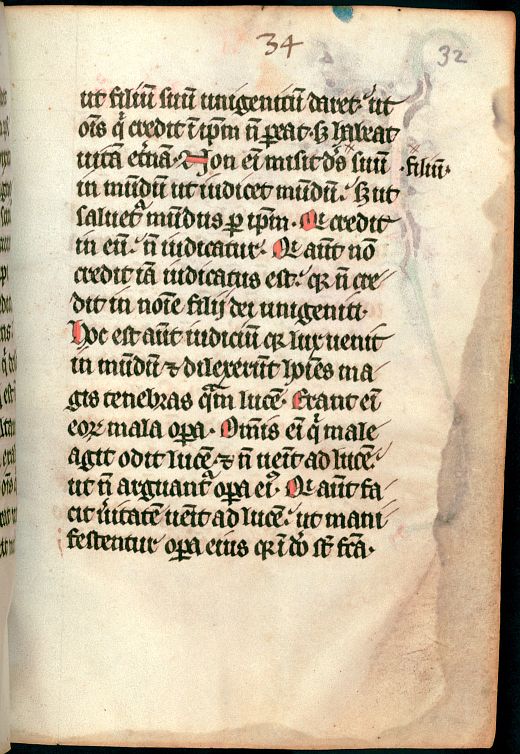 34
32
ut filiū suū unigenitū daret· ut
oīs q̄ credit ī ip̄m n̄ p̄eat· s̄ habeat
uitā et̄nā· Non eī misit dſ̄ suū ·filiū·
in mūdū ut iudicet mūdū· s̄ ut
saluet᷑ mūdus p̄ ip̄m· Qı credit
in eū· n̄ iudicatur· Qı aūt nō
credit iā iudicatus est· qꝛ n̄ cre
dit in noīe filij dei unigeniti·
Hoc est aūt iudiciū qꝛ lux uenit
in mūdū ⁊ dilexerūt hoīes ma
gis tenebras q̄m lucē· Erant eī
eoꝝ mala oꝑa· Omīs eī q̄ male
agit odit lucē ⁊ n̄ uēit ad lucē·
ut n̄ arguant᷑ oꝑa ei᷒· Qı aūt fa
cit ūitatē uēit ad lucē· ut mani
festentur oꝑa eius qꝛ ī dō st̄ fc̄a·